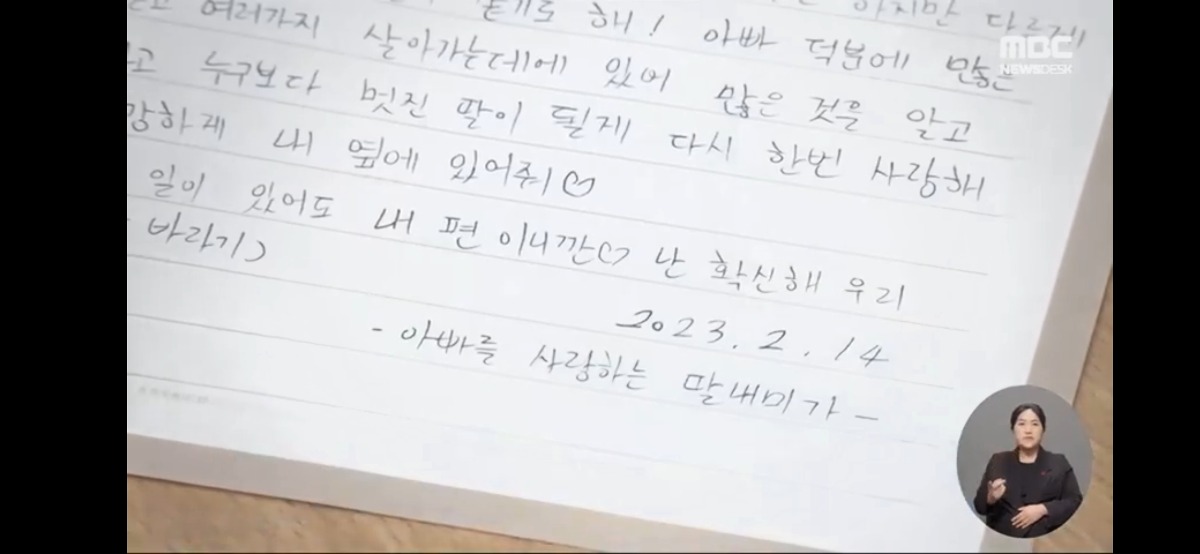 하지만 다르게
듣기도 해! 아빠 덕분에 많은
여러가지 살아가는데에 있어 많은 것을 알고
고 누구보다 멋진 딸이 될게 다시 한번 사랑해
강하게 내 옆에 있어줘♡
일이 있어도 내 편 이니깐♡ 난 확신해 우리
바라기)
2023. 2. 14
- 아빠를 사랑하는 딸내미가 -
MBC
NEWSDESK